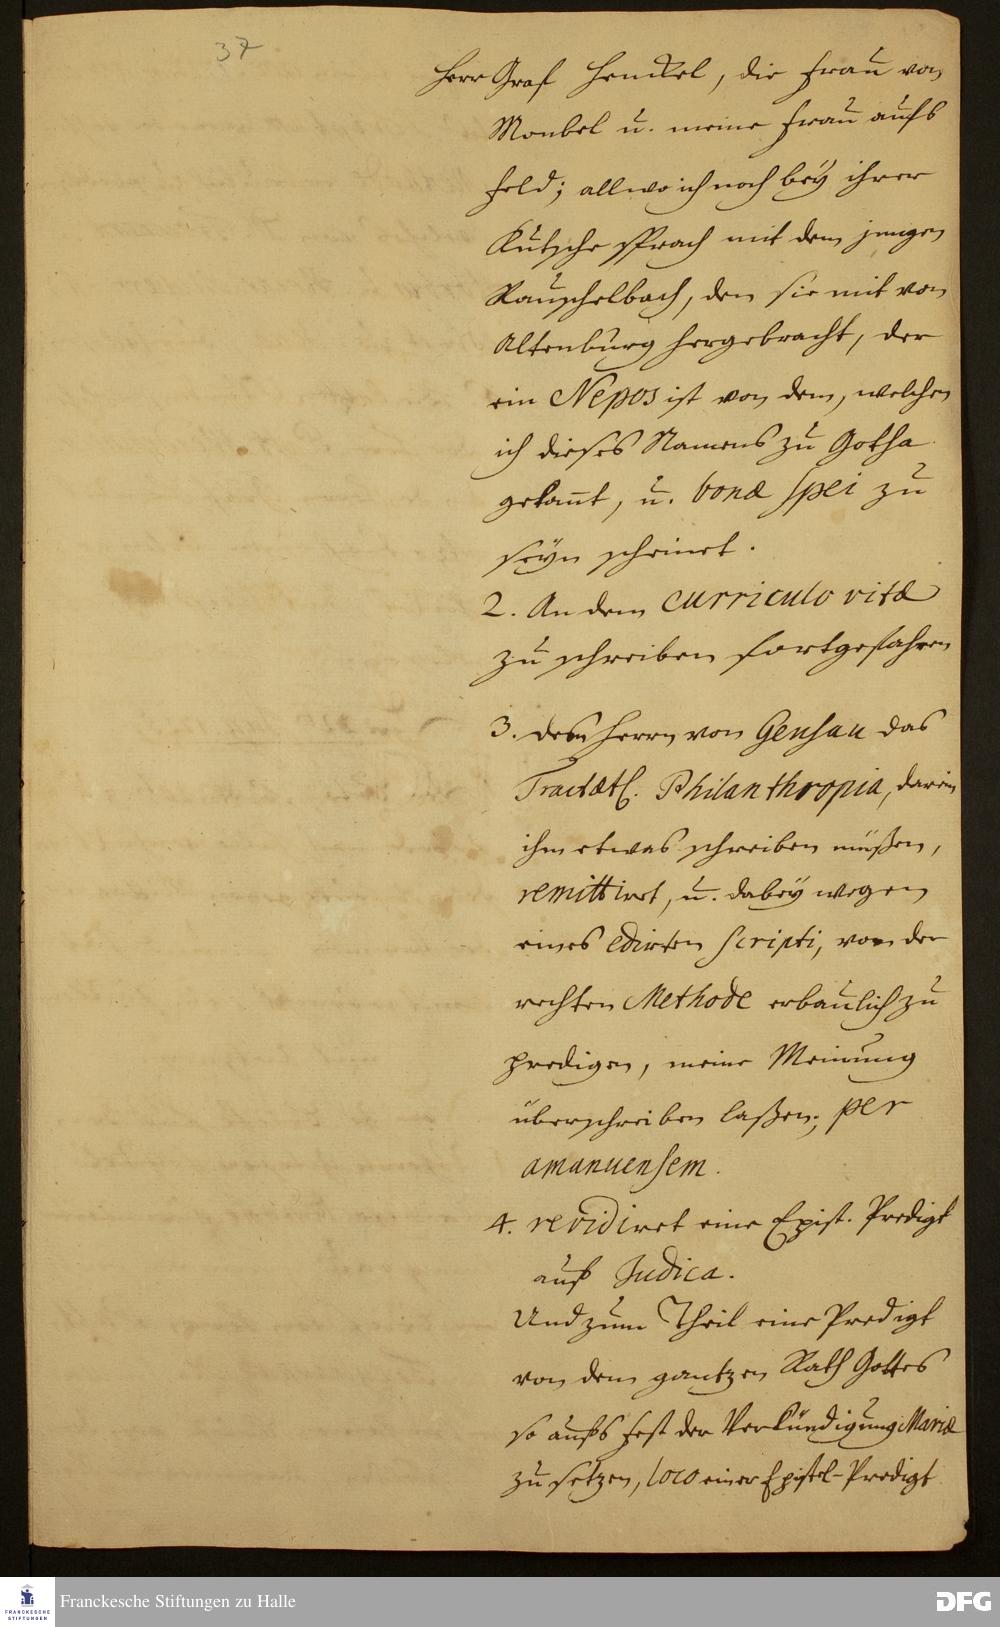 37
Herr Graf Henckel, die Frau von
Monbel u. meine Frau aufs
Feld; allwo ich noch bey ihrer
Kutsche sprach mit dem jungen
Rauschelbach, den sie mit von
Altenburg hergebracht, der
ein Nepos ist von dem, welchen
ich dieses Namens zu Gotha
gekañt, u. bonæ spei zu
seyn scheinet.
2. An dem curriculo vitæ
zu schreiben fortgefahren
3. dem Herrn von Geusau das
Tractætl. Philanthropia, darein
ihm etwas schreiben müßen,
remittiret, u. dabey wegen
eines edirten scripti, von der
rechten Methode erbaulich zu
predigen, meine Meinung
überschreiben laßen; per
amanuensem.
4. revidiret eine Epist. Predigt
auf Judica.
Und zum Theil eine Predigt
von dem gantzen Rath Gottes
so aufs Fest der Verkündigung Mariæ
zu setzen, loco einer Epistel-Predigt
Franckesche Stiftungen zu Halle
FRANCKESCHE
STIFTUNGEN
DFG